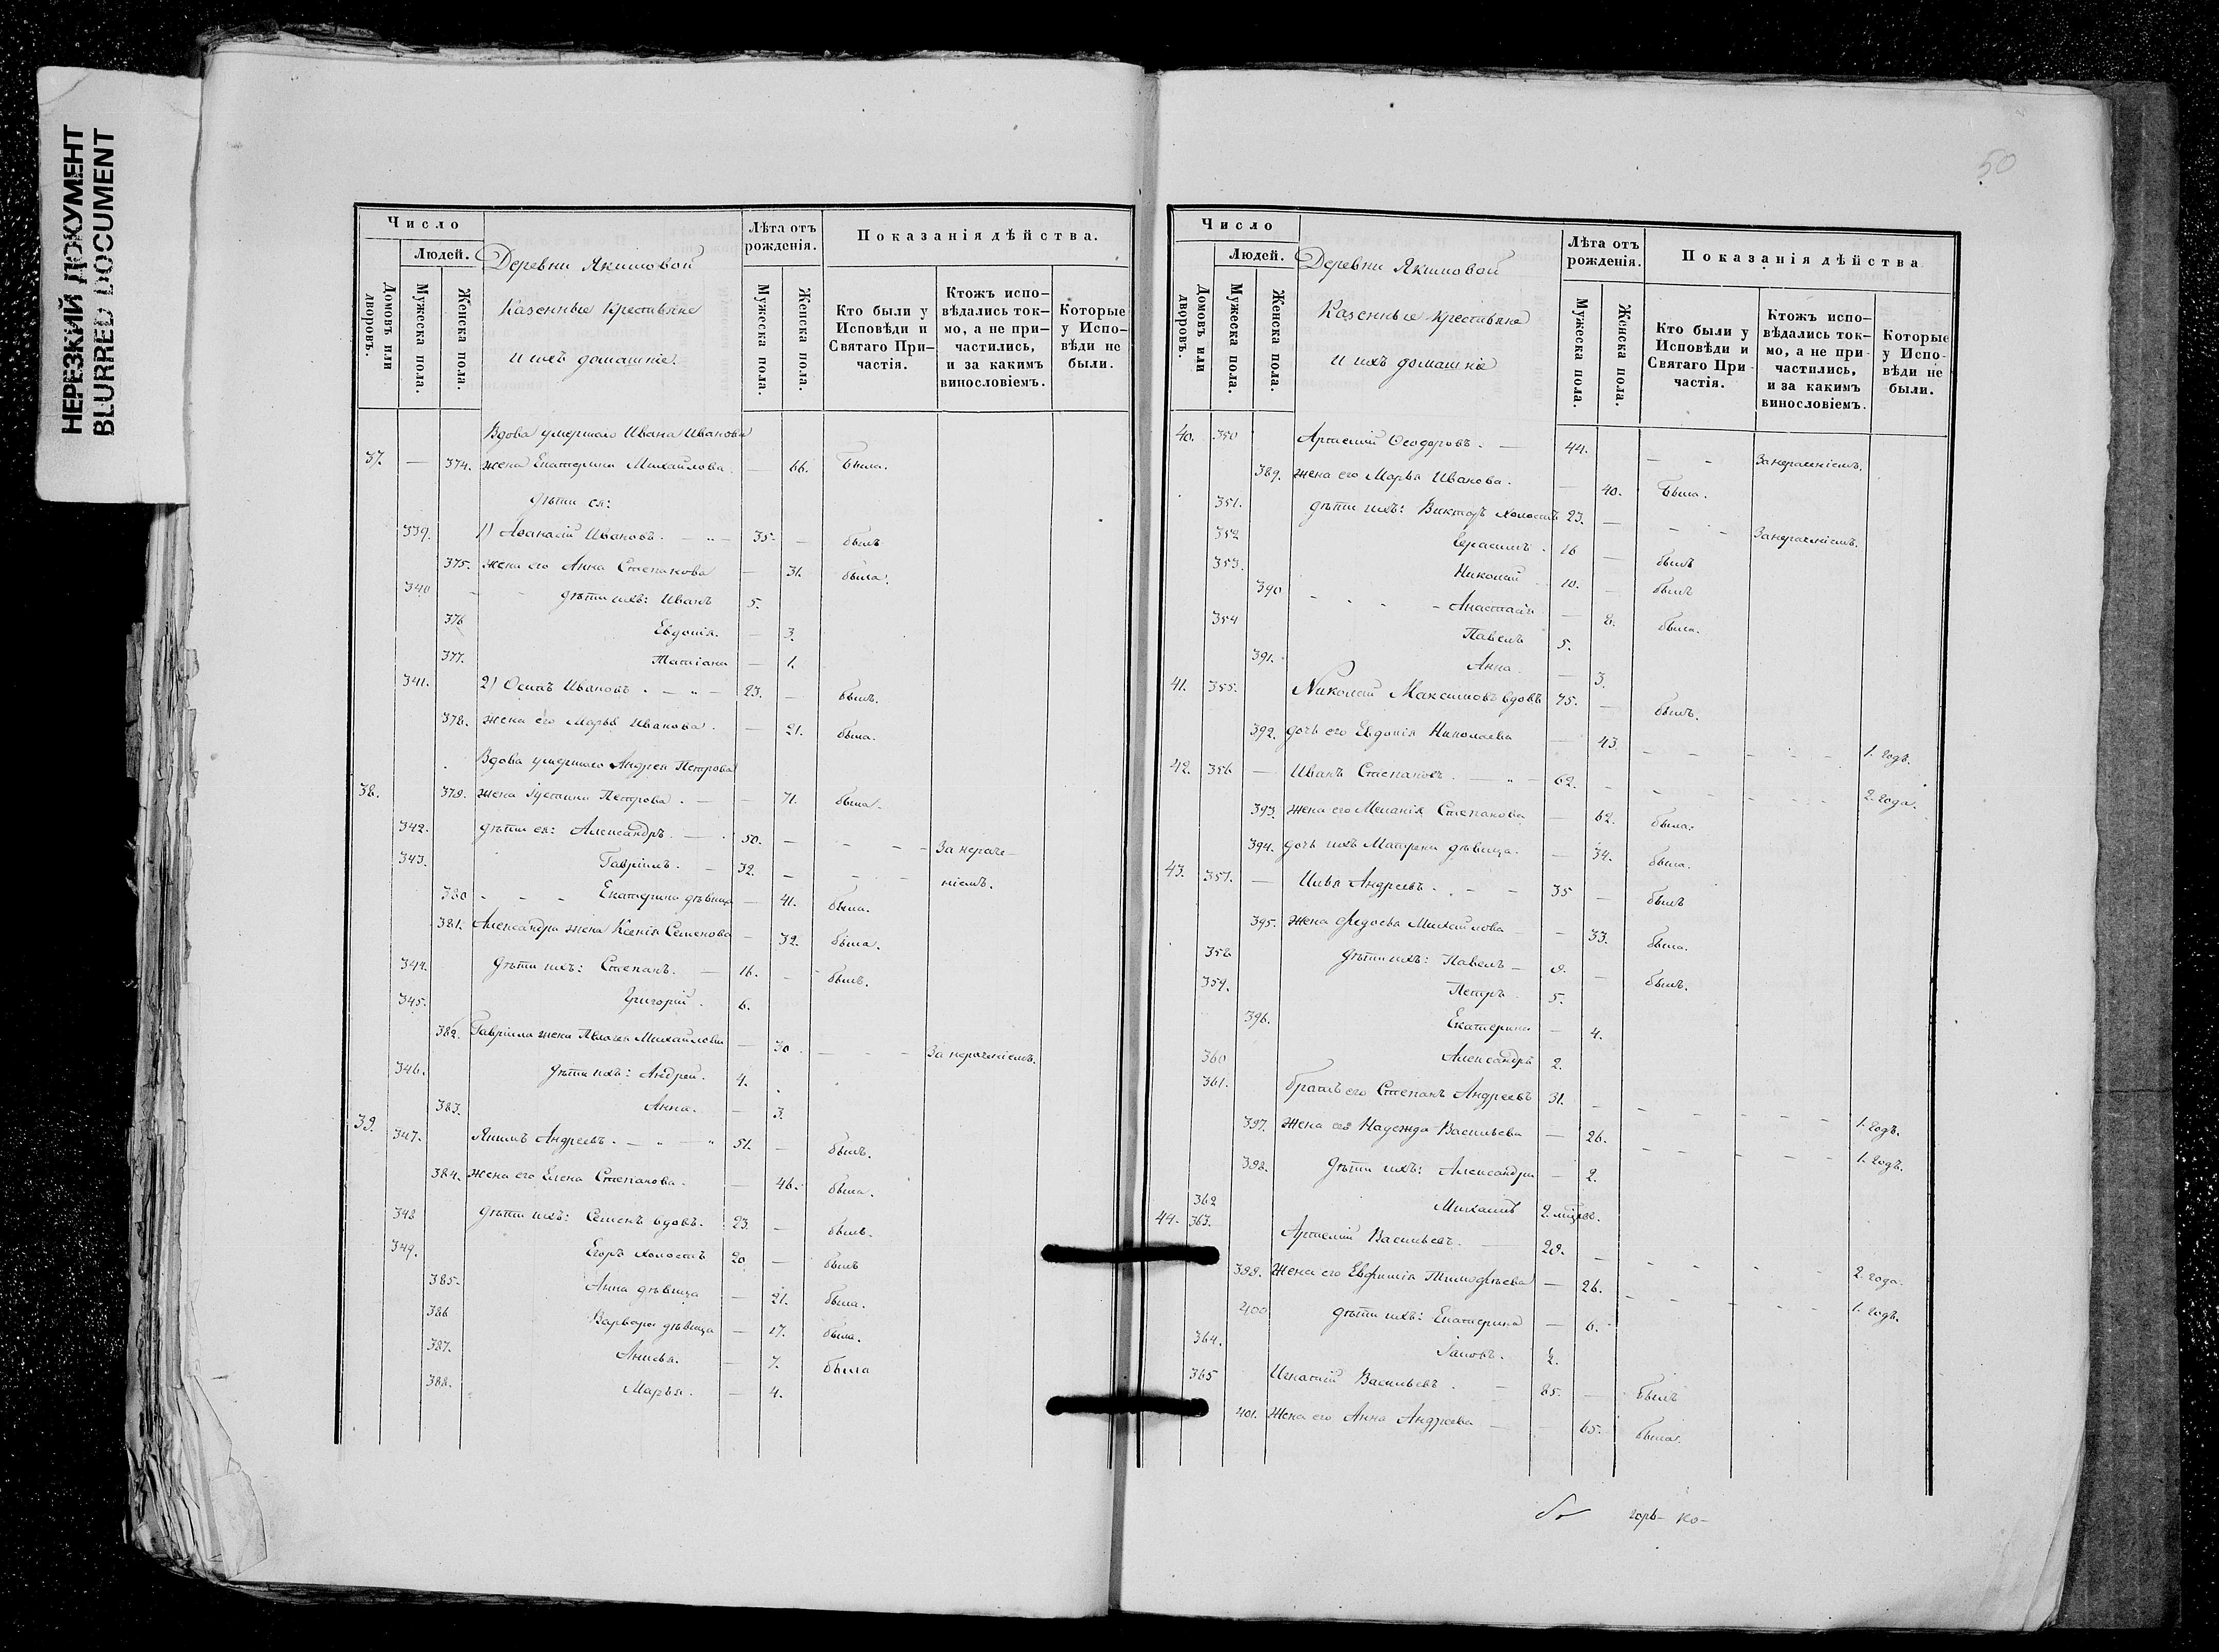 НЕРЕЗКИЙ ДОКУМЕНТ
BLURRED DOCUMENT
Число
Людей.
Домовъ или дворовъ.
Мужеска пола.
Женска пола.
Деревни Якимовой
Казенные крестьяне
и ихъ домашніе.
Лѣта отъ рожденія.
Мужеска пола.
Женска пола.
Показанія дѣйства.
Кто были у Исповѣди и Святаго Причастія.
Ктожъ исповѣдались токмо, а не причастились, и за какимъ винословіемъ.
Которые у Исповѣди не были.
Вдова умершаго Ивана Иванова
37. — 374. жена Екатерина Михайлова. — 66. Была.
дѣти ея:
339. 1) Аѳанасій Ивановъ. — „ — 35. — былъ
375. жена его Анна Степанова — 31. была.
340 - - дѣти ихъ: Иванъ 5.
376 Евдокія. — 3.
377. Татіана — 1.
341. 2) Осипъ Ивановъ. — „ — 23. — былъ.
378. жена его Марья Иванова. — 21. была.
Вдова умершаго Андрея Петрова
38. 379. жена Іустина Петрова. — — 71. была.
342. дѣти ея: Александръ. — 50. — - - За нераче-
343. Гавріилъ. — 32. — - - ніемъ.
380 - - - Екатерина дѣвица — 41. была.
381. Александра жена Ксенія Семенова — 32. была.
344. дѣти ихъ: Степанъ. — 16. — былъ.
345. Григорій. 6.
382. Гавріила жена Михайлова — 30. — - - За нераченіемъ.
346. дѣти ихъ: Андрей. 4.
383. Анна. — 3.
39. 347. Якимъ Андреевъ. — „ — „ 51. — былъ.
384. жена его Елена Степанова. — 46. была.
348 дѣти ихъ: Семенъ вдовъ. 23. — былъ.
349. Егоръ холостъ 20 — былъ
385. Анна дѣвица — 21. была.
386 Варвара дѣвица — 17. была.
387. Анисья. — 7. была
388. Марья. — 4.
50
Число
Людей.
Домовъ или дворовъ.
Мужеска пола.
Женска пола.
Деревни Якимовой
Казенные крестьяне
и ихъ домашніе
Лѣта отъ рожденія.
Мужеска пола.
Женска пола.
Показанія дѣйства
Кто были у Исповѣди и Святаго Причастія.
Ктожъ исповѣдались токмо, а не причастились, и за какимъ винословіемъ.
Которые у Исповѣди не были.
40. 350 Артемій Ѳеодоровъ. — 44. — - За нераченіемъ.
389. жена его Марья Иванова. — 40. Была.
351. дѣти ихъ: Викторъ холостъ 23. — - - За нераченіемъ.
352 Герасимъ. 16 — былъ
353. Николай 10. — былъ
390 - - - - Анастасія — 8. была.
354 Павелъ 5.
391. Анна — 3.
41. 355. Николай Максимовъ вдовъ 75. — былъ.
392. дочь его Евдокія Николаева — 43. - - - - 1. годъ.
42. 356 — Иванъ Степановъ. — „ — 62. - - - - 2. года.
393. жена его Меланія Степанова — 62. была.
394. дочь ихъ Матрена дѣвица. — 34. была.
43. 357. — Илья Андреевъ. - - 35 — былъ
395. жена Ѳедосья Михайлова — 33. была.
358 дѣти ихъ: Павелъ — 8. — былъ.
359. Петръ. 5.
396. Екатерина — 4.
360 Александръ 2.
361. братъ его Степанъ Андреевъ 31. — - - - - 1. годъ.
397. жена его Надежда Васильева — 26. - - - - 1. годъ.
398. дѣти ихъ: Александра — 2.
362 Михаилъ 2.
44. 363. Артемій Васильевъ. — 28. — - - - 2. года.
399. жена его Евфимія Тимофѣева — 26. - - - - 1. годъ.
400 дѣти ихъ: Екатерина — 6.
364. Іаковъ.
365 Игнатій Васильевъ. — 85. — Былъ
401. Жена его Анна Андреева — — 65. была.